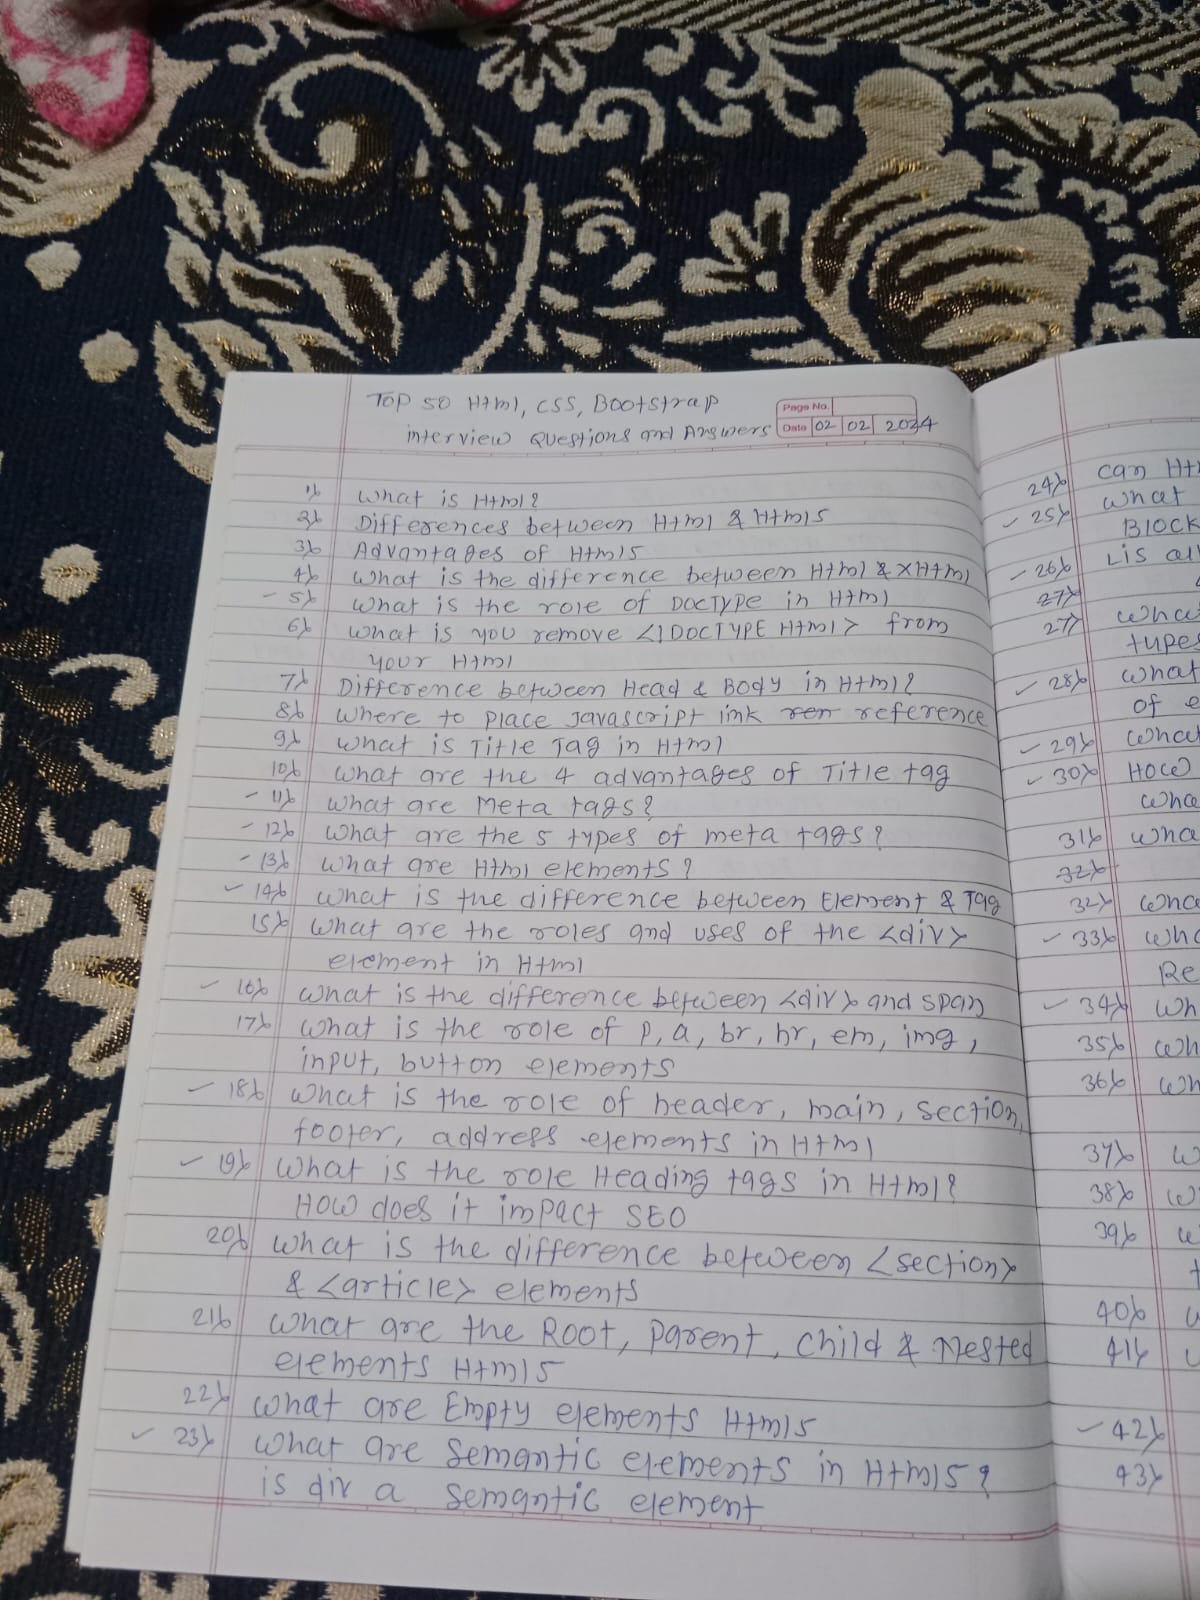 Top 50 Html, CSS, Bootstrap
interview Questions and Answers
Page No.
Date 02 02 2024
1) What is Html?
2) Differences between Html & Html5
3) Advantages of Html5
4) What is the difference between Html & XHtml
- 5) What is the role of DOCTYPE in Html
6) What is you remove <!DOCTYPE Html> from
your Html
7) Difference between Head & Body in Html?
8) Where to place Javascript link reference
9) What is Title Tag in Html
10) What are the 4 advantages of Title tag
- 11) What are Meta tags?
- 12) What are the 5 types of meta tags?
- 13) What are Html elements?
✓ 14) What is the difference between Element & Tag
15) What are the roles and uses of the <div>
element in Html
✓ 16) What is the difference between <div> and span
17) What is the role of p, a, br, hr, em, img,
input, button elements
✓ 18) What is the role of header, main, section,
footer, address elements in Html
✓ 19) What is the role Heading tags in Html?
How does it impact SEO
20) What is the difference between <section>
& <article> elements
21) What are the Root, Parent, Child & Nested
elements Html5
22) What are Empty elements Html5
✓ 23) What are Semantic elements in Html5?
is div a semantic element
24) Can
✓ 25) What
Block
✓ 26) Lis
27)
27)
types
✓ 28) What
of
✓ 29)
✓ 30) How
31)
32)
32)
✓ 33)
✓ 34)
35)
36)
37)
38)
39)
40)
41)
✓ 42)
43)